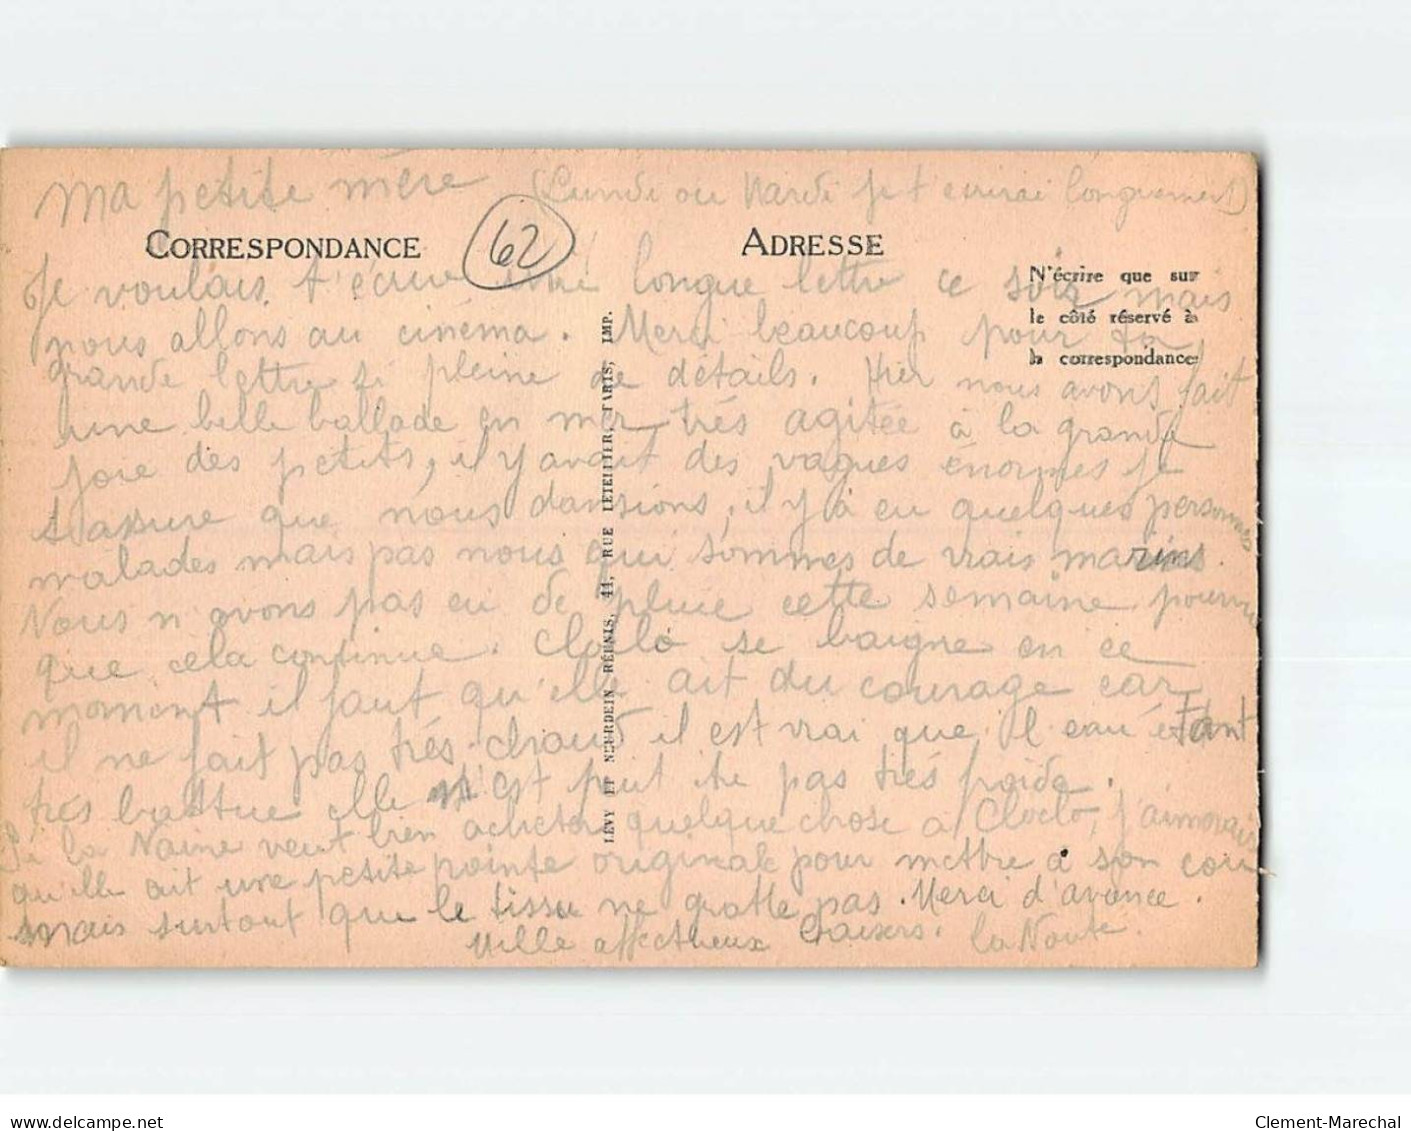 Ma petite mère (Lundi ou Mardi je t'écrirai longuement)
CORRESPONDANCE
62
ADRESSE
N'écrire que sur
le côté réservé à
la correspondance
Je voulais t'écrire une longue lettre ce soir mais
nous allons au cinéma. Merci beaucoup pour ta
grande lettre si pleine de détails. Hier nous avons fait
une belle ballade en mer très agitée à la grande
joie des petits, il y avait des vagues énormes je
t'assure que nous dansions, il y a eu quelques personnes
malades mais pas nous qui sommes de vrais marins.
Nous n'avons pas eu de pluie cette semaine pourvu
que cela continue. Cloclo se baigne en ce
moment il faut qu'elle ait du courage car
il ne fait pas très chaud il est vrai que l'eau étant
très battue elle n'est peut être pas très froide.
Si la Naine veut bien acheter quelque chose à Cloclo, j'aimerais
qu'elle ait une petite pointe originale pour mettre à son cou
mais surtout que le tissu ne gratte pas. Merci d'avance.
Mille affectueux baisers. la Noute.
LÉVY ET NEURDEIN RÉUNIS, 44, RUE LETELLIER, PARIS, IMP.
www.delcampe.net
Clement-Marechal